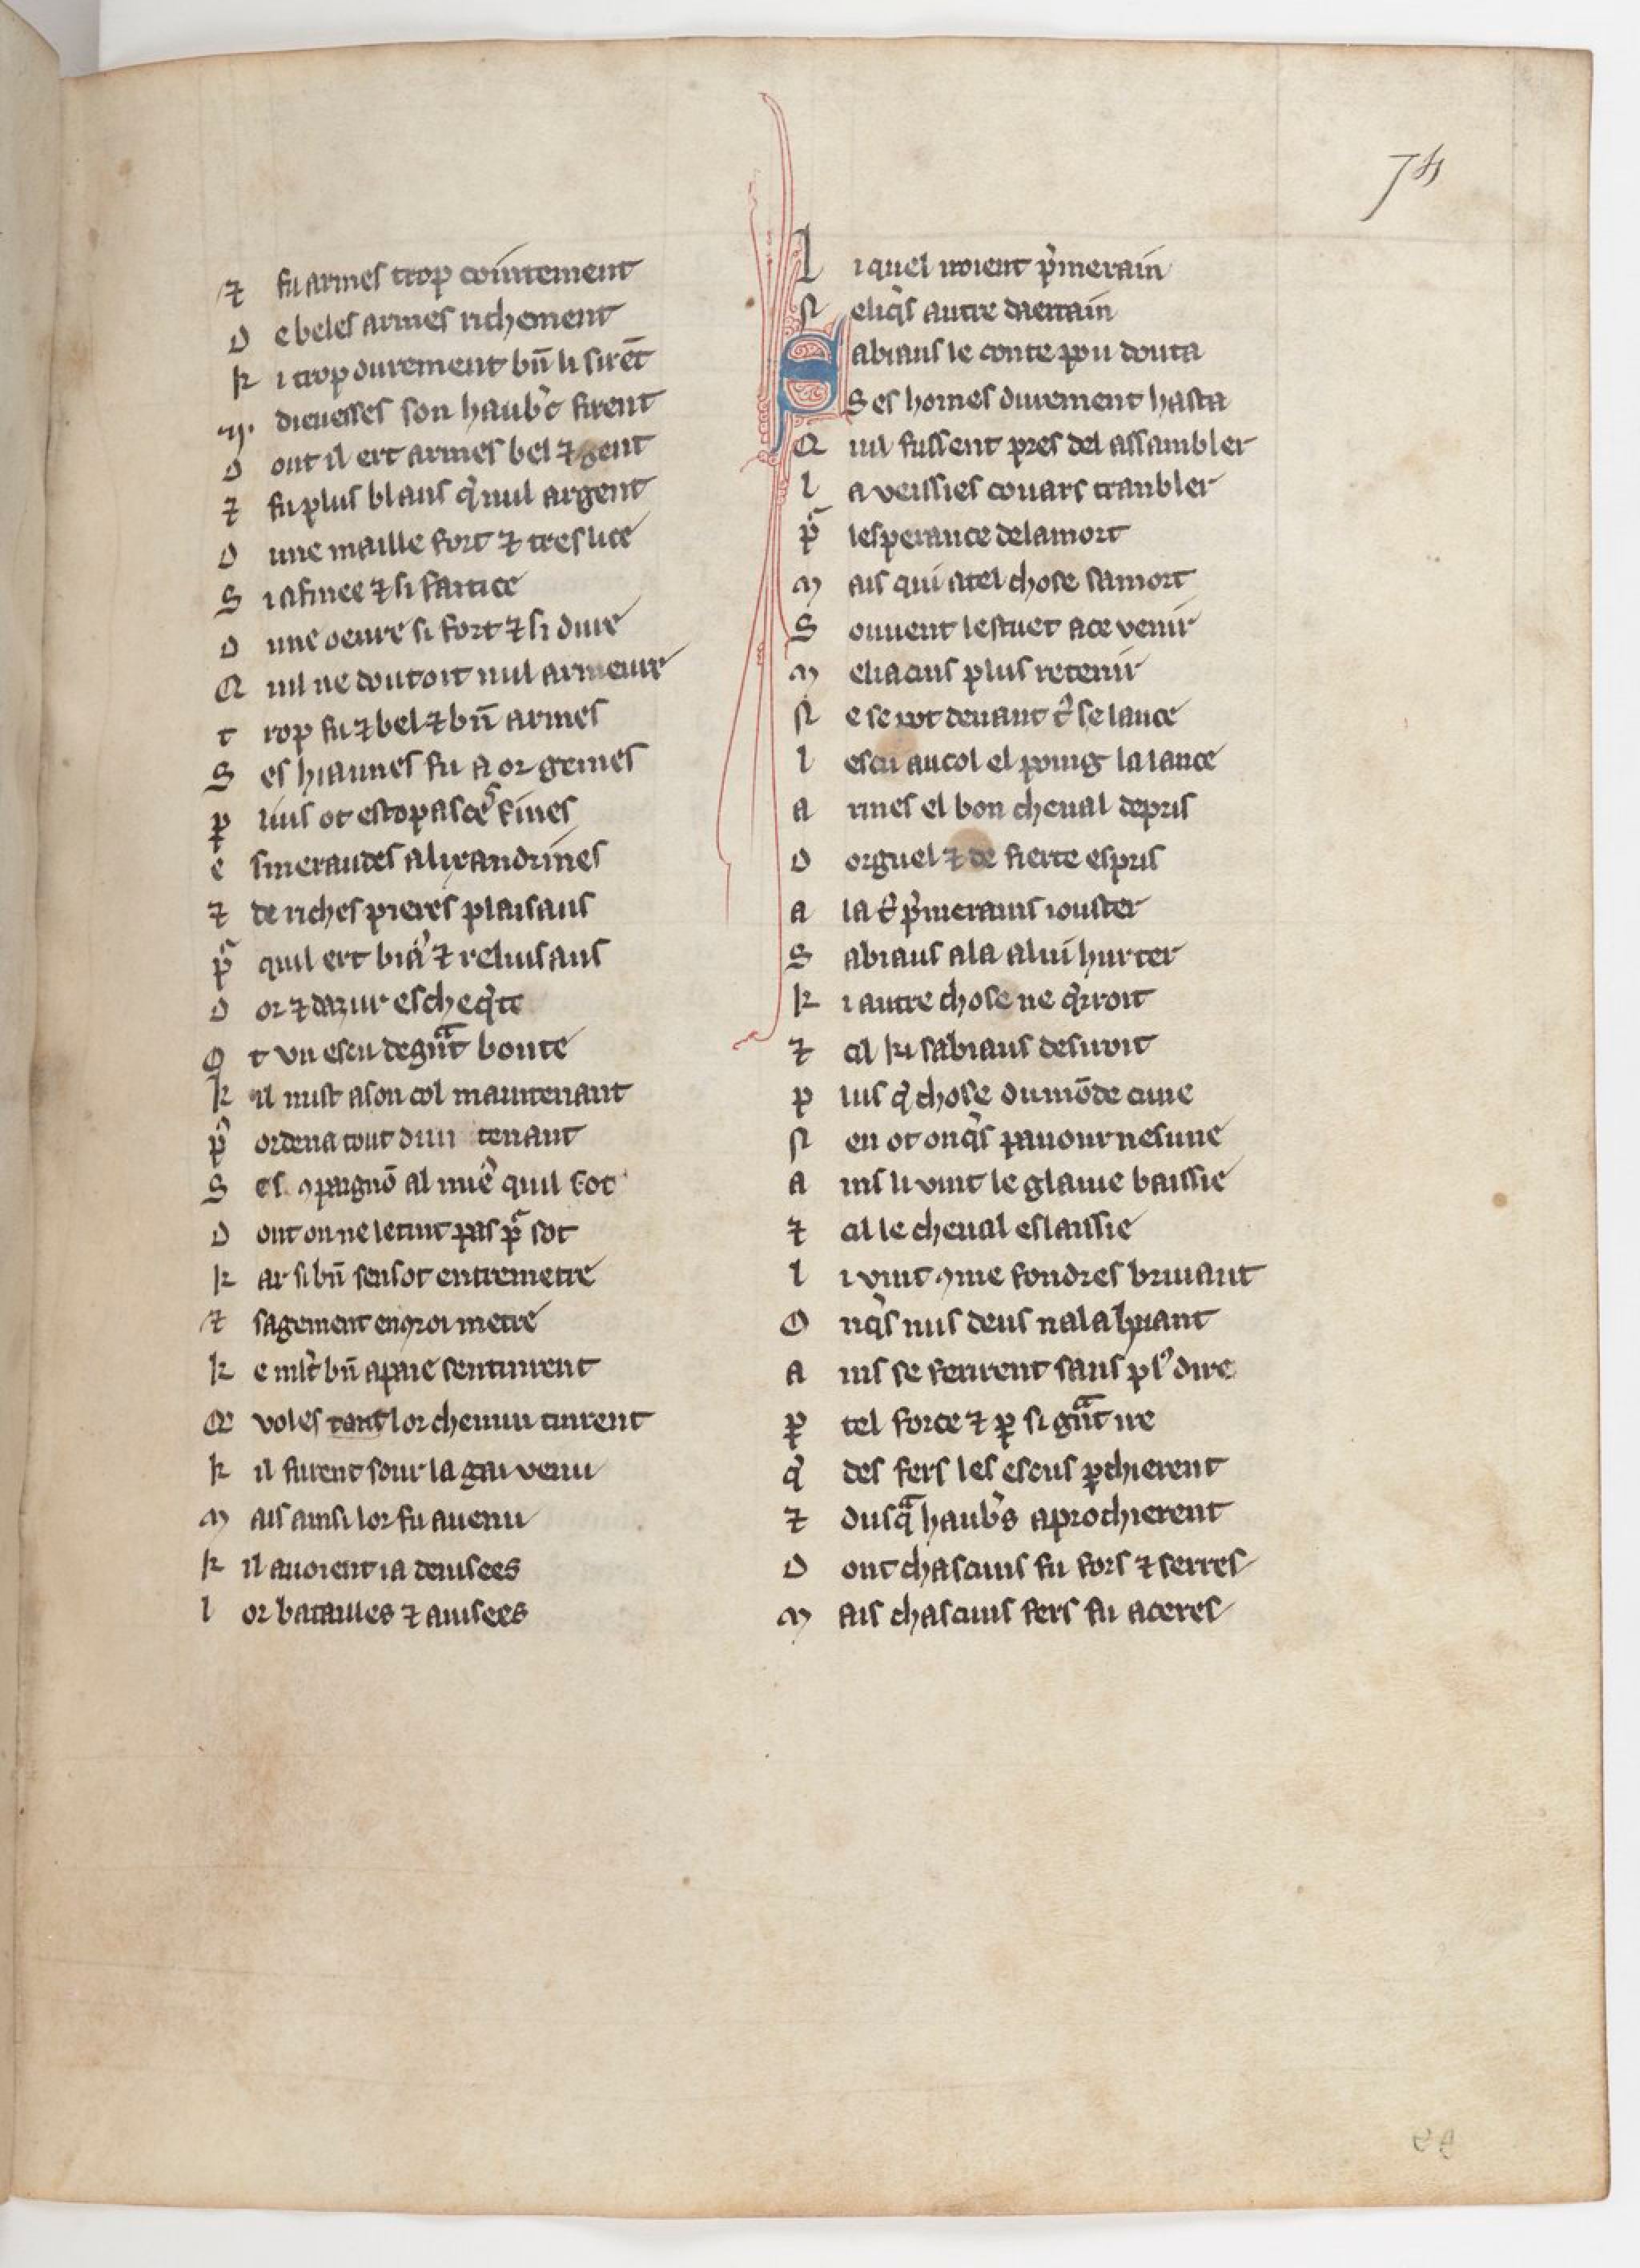 74
⁊ fu armes trop cointement
D e beles armes richement
k i trop durement bn̄ li sirēt
.ij. dieuesses son haub'c firent
D ont il ert armes bel ⁊ gent
⁊ fu plus blans q' nul argent
D une maille fort ⁊ tres lice
S i afinee ⁊ si faitice
D une oeure si fort ⁊ si dure
Q uil ne doutoit nul armeure
t rop fu ⁊ bel ⁊ bn̄ armes
S es hiaumes fu a or gemes
p luis ot estopasce' fines
e smeraudes alixandrines
⁊ de riches pieres plaisans
p quil ert biā' ⁊ reluisans
D or ⁊ dazur escheq'te
O t vn escu de gn̄t bonte
k il mist a son col maintenant
p' ordena tout dun tenant
S es ꝯpaignō al mie' quil sot
D ont on ne le tint pas p sot
k ar si bn̄ sen sot entremetre
⁊ sagement en ꝯroi metre
k e mlt' bn̄ apaie sen tinrent
Q voles tant lor chemin tinrent
k il furent sour la gai venu
M ais ainsi lor fu auenu
k il auoient ia deuisees
l or batailles ⁊ auisees
L i quel iroient p'merain
N e liq's autre daerrain
S abians le conte pou douta
S es homes durement hasta
Q uil fussent pres del assambler
l a veissies couars tranbler
p lesperance de la mort
M ais qui a tel chose samort
S ouuent lestuet a ce venir
M eliacins plus retenir
N e se pot deuant t' se lance
l escu au col el poing la lance
a rmes el bon cheual de pris
D orguel ⁊ de fierte espris
a la t' p'merains iouster
S abians ala a lui hurter
k i autre chose ne q'roit
⁊ cil ki sabians desiroit
p lus q' chose du mōde aine
N en ot onq's paour nesune
a ins li vint le glaiue baissie
⁊ cil le cheual eslaissie
l i vint ꝯme fondres bruiant
O nq's nus deus nala huiant
a ins se ferirent sans pl' dire
ꝑ tel force ⁊ ꝑ si gn̄t ire
q' des fers les escus ꝑchierent
⁊ dusq haub's aprochierent
D ont chascuns fu fors ⁊ serres
M ais chascuns fers fu aceres